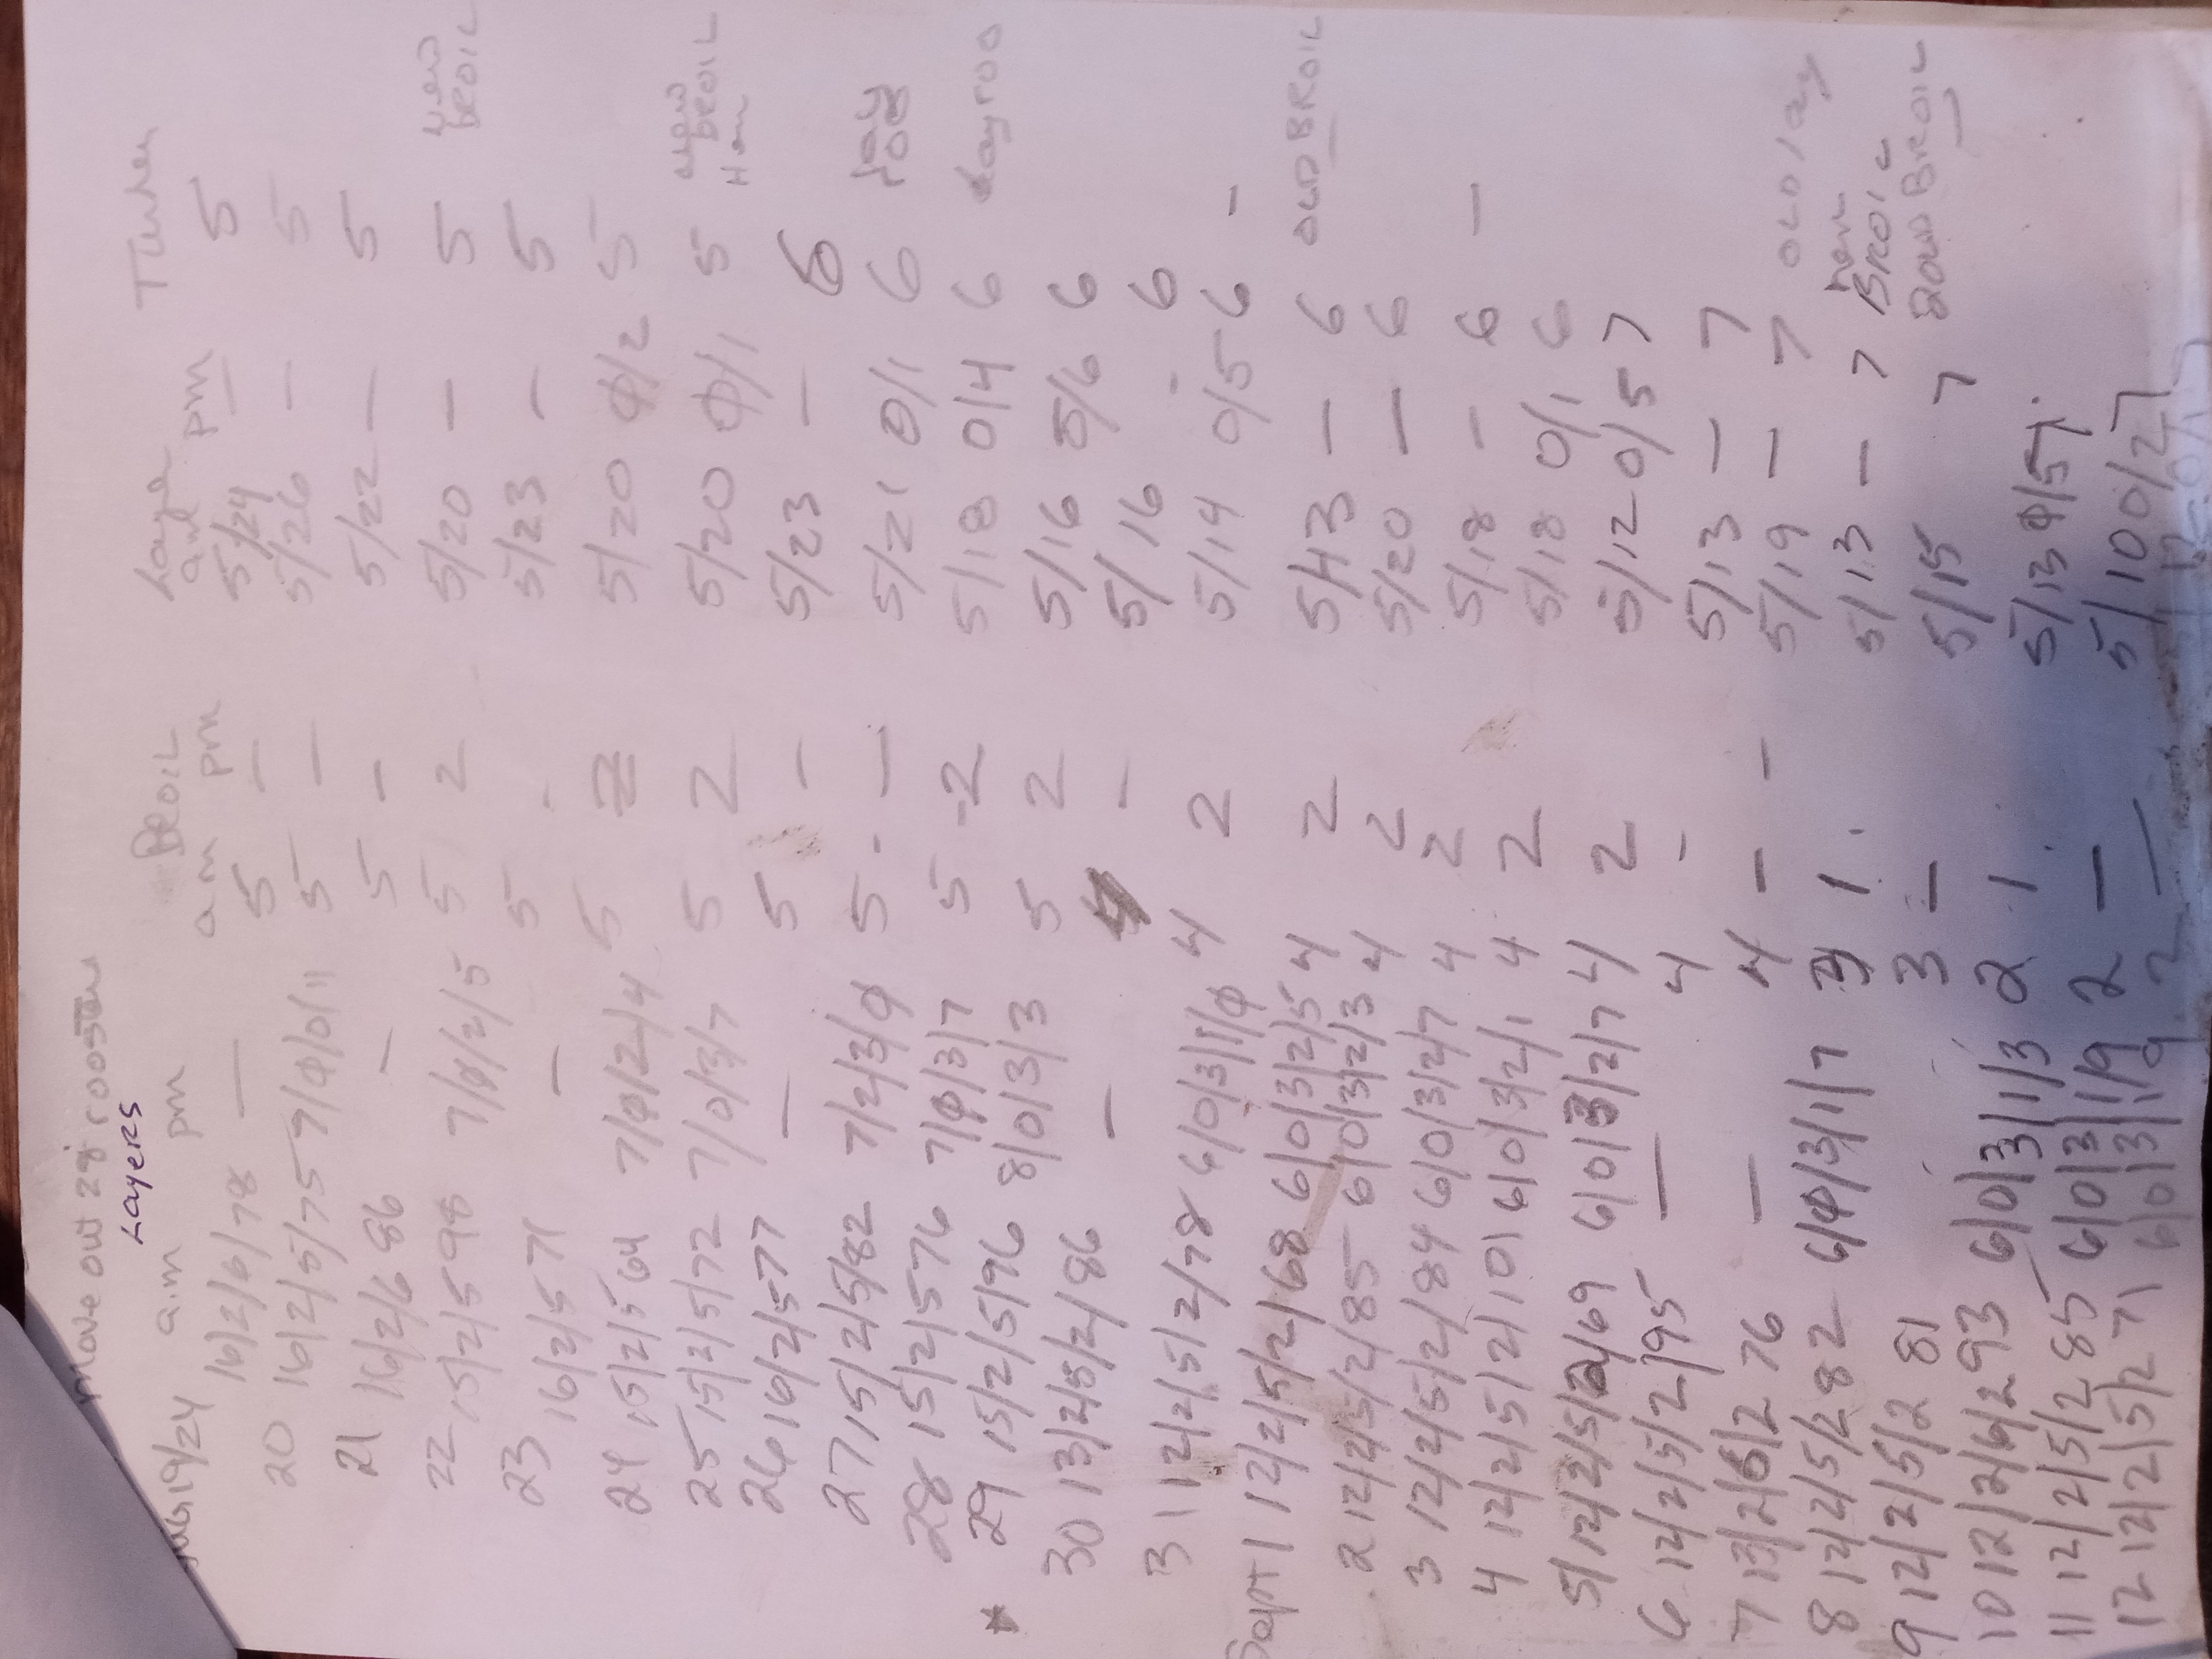 move out 28 rooster
Layers
19/24 a.m pm BROIL am pm Laye am pm Turken
16/2/6/78 — 5 — 5/24 — 5
20 16/2/5/75 7/0/0/11 5 — 5/26 — 5
21 16/2/6 86 — 5 — 5/22 — 5
22 15/2/5 98 7/0/2/5 5 2 5/20 — 5 new BROIL
23 16/2/5 71 — 5 - 5/23 — 5
24 15/2/5 64 7/0/2/4 5 2 5/20 0/2 5
25 15/2/5/72 7/0/3/7 5 2 5/20 0/1 5 new BROIL Hen
26 16/2/5 77 — 5 — 5/23 — 6
27 15/2/5/82 7/2/3/0 5 - — 5/21 0/1 6
28 15/2/5 76 7/0/3/7 5 -2 5/18 0/4 6 Layroo
29 15/2/5/96 8/0/3/3 5 2 5/16 0/6 6
30 13/2/5/2/86 — 4 — 5/16 - 6
31 12/2/5/2/78 6/0/3/1/0 4 2 5/14 0/5 6 -
Sept 1 12/2/5/2/68 6/0/3/2/5 4 2 5/13 — 6 OLD BROIL
2 12/2/5/2/85 6/0/3/2/3 4 2 5/20 — 6
3 12/2/5/2/84 6/0/3/2/7 4 2 5/18 - 6 —
4 12/2/5/2/101 6/0/3/2/1 4 2 5/18 0/1 6
5/12/2/5/2/69 6/0/3/2/7 4 2 5/12 0/5 7
6 12/2/5/2/95 — 4 - 5/13 — 7
7 13/2/5/2 76 — 4 — - 5/19 — 7 OLD Lay
8 12/2/5/2 82 6/0/3/1/7 3 1 5/13 — 7 new BROIL
9 12/2/5/2 81 3 — 5/15 7 BROIL
10 12/2/6/2 93 6/0/3/1/3 2 1 5/13 0/5 7
11 12/2/5/2 85 6/0/3/1/9 2 — 5/10 0/2 7
12 12/2/5/2 71 6/0/3/1/9 2 —